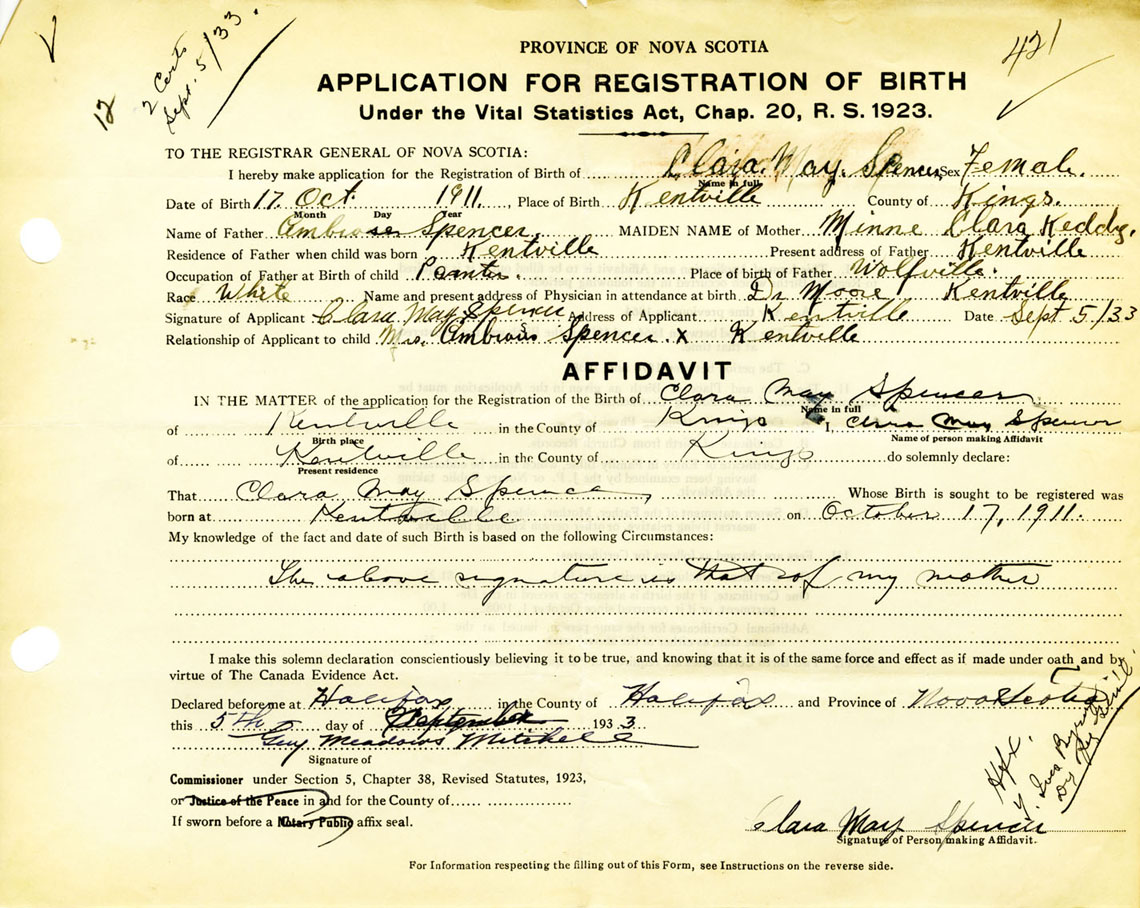 12
2 Certs
Sept. 5/33.
421
PROVINCE OF NOVA SCOTIA
APPLICATION FOR REGISTRATION OF BIRTH
Under the Vital Statistics Act, Chap. 20, R. S. 1923.
TO THE REGISTRAR GENERAL OF NOVA SCOTIA:
I hereby make application for the Registration of Birth of Clara May Spencer Sex Female.
Name in full
Date of Birth 17 Oct. 1911. Place of Birth Kentville County of Kings.
Month Day Year
Name of Father Ambroser Spencer. MAIDEN NAME of Mother Minne Clara Keddy.
Residence of Father when child was born Kentville Present address of Father Kentville
Occupation of Father at Birth of child Painter. Place of birth of Father Wolfville.
Race White Name and present address of Physician in attendance at birth Dr Moore Kentville
Signature of Applicant Clara May Spencer Address of Applicant Kentville Date Sept 5/33
Relationship of Applicant to child Mrs. Ambrous Spencer. x Kentville
AFFIDAVIT
IN THE MATTER of the application for the Registration of the Birth of Clara May Spencer
Name in full
of Kentville in the County of Kings I, Clara May Spencer
Birth place Name of person making Affidavit
of Kentville in the County of Kings do solemnly declare:
Present residence
That Clara May Spencer, Whose Birth is sought to be registered was
born at Kentville on October 17, 1911.
My knowledge of the fact and date of such Birth is based on the following Circumstances:
The above signature is that of my mother
I make this solemn declaration conscientiously believing it to be true, and knowing that it is of the same force and effect as if made under oath and by
virtue of The Canada Evidence Act.
Declared before me at Halifax in the County of Halifax and Province of Nova Scotia
this 5th day of September 1933
Guy Meadows Mitchell
Signature of
Commissioner under Section 5, Chapter 38, Revised Statutes, 1923,
or Justice of the Peace in and for the County of
If sworn before a Notary Public affix seal.
Hfx.
Clara May Spencer
Signature of Person making Affidavit.
For Information respecting the filling out of this Form, see Instructions on the reverse side.